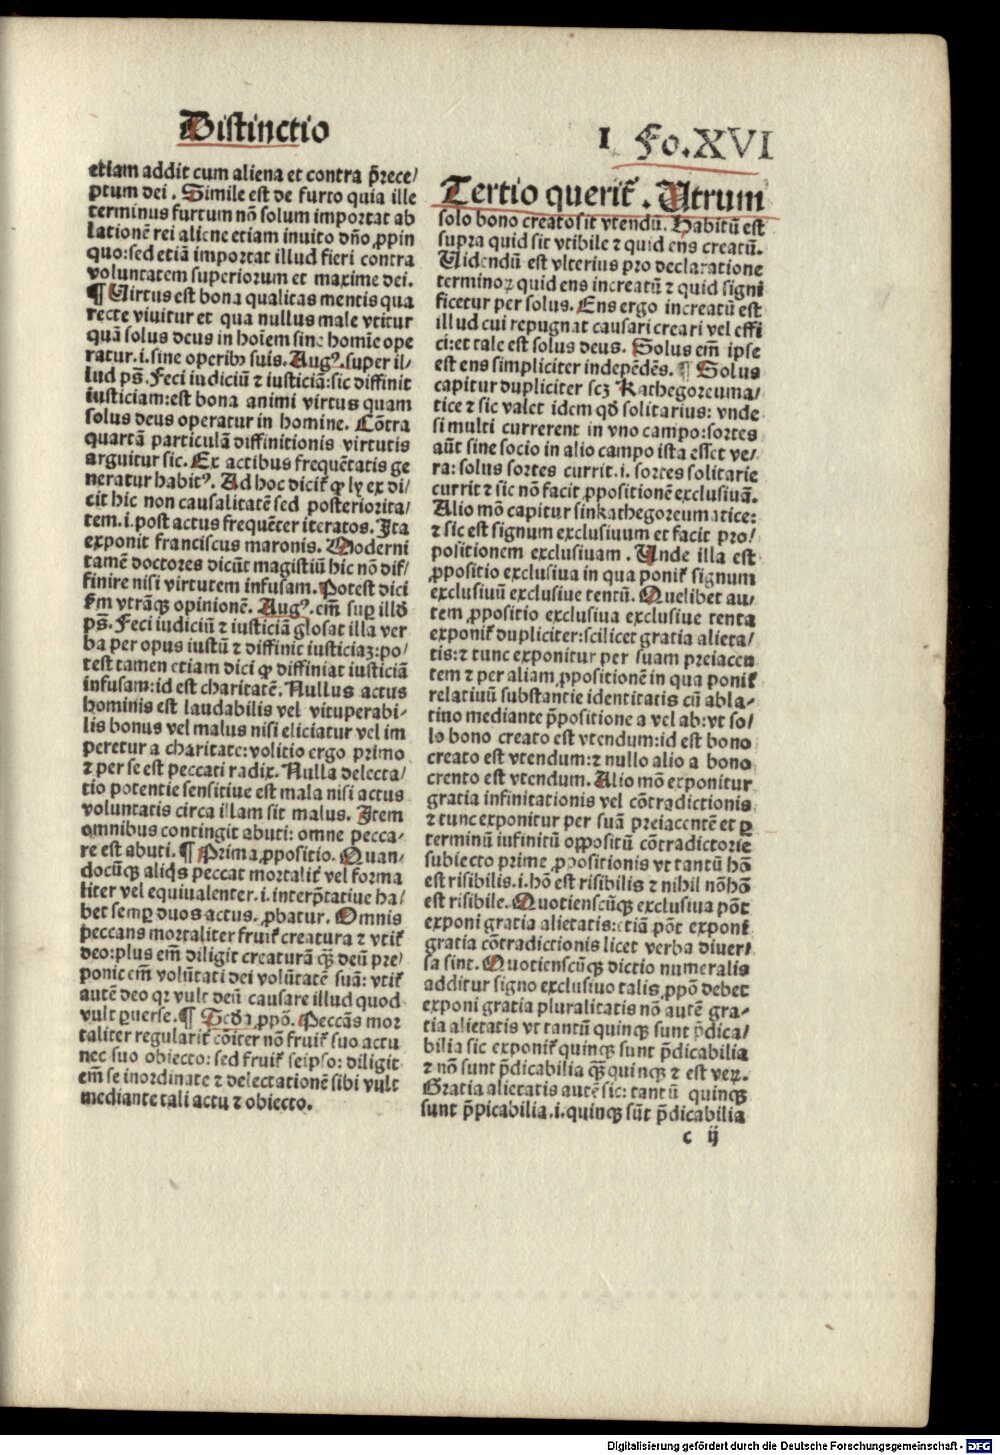 Distinctio
I Fo.XVI
etiam addit cum aliena et contra p̄rece/
ptum dei. Simile est de furto quia ille
terminus furtum nō solum importat ab
lationē rei aliene etiam inuito dño ꝓpin
quo: sed etiā importat illud fieri contra
voluntatem superiorum et maxime dei.
¶ Virtus est bona qualitas mentis qua
recte viuitur et qua nullus male vtitur
quā solus deus in hoīem sine homīe ope
ratur.i.sine operibꝫ suis. Augꝰ.super il/
lud pš. Feci iudiciū ⁊ iusticiā: sic diffinit
iusticiam: est bona animi virtus quam
solus deus operatur in homine. Cōtra
quartā particulā diffinitionis virtutis
arguitur sic. Ex actibus frequētatis ge
neratur habitꝰ. Ad hoc dicit̄ ꝙ ly ex di/
cit hic non causalitatē sed posteriorita/
tem.i.post actus frequēter iteratos. Ita
exponit franciscus maronis. Moderni
tamē doctores dicūt magistrū hic nō dif/
finire nisi virtutem infusam. Potest dici
s̄m vtrāqꝫ opinionē. Augꝰ. em̄ suꝑ illđ
pš. Feci iudiciū ⁊ iusticiā glosat illa ver
ba per opus iustū ⁊ diffinit iusticiaꝫ: po/
test tamen etiam dici ꝙ diffiniat iusticiā
infusam: id est charitatē. Nullus actus
hominis est laudabilis vel vituperabi/
lis bonus vel malus nisi eliciatur vel im
peretur a charitate: volitio ergo primo
⁊ per se est peccati radix. Nulla delecta/
tio potentie sensitiue est mala nisi actus
voluntatis circa illam sit malus. Item
omnibus contingit abuti: omne pecca-
re est abuti. ¶ Prima ꝓpositio. Quan/
docūqꝫ aliq̄s peccat mortalit̄ vel forma
liter vel equiualenter.i.interp̄tatiue ha/
bet semꝑ duos actus. ꝓbatur. Omnis
peccans mortaliter fruit̄ creatura ⁊ vtit̄
deo: plus em̄ diligit creaturā qꝫ̄ deū pre/
ponit em̄ volūtati dei volūtatē suā: vtit̄
autē deo qꝛ vult deū causare illud quod
vult ꝑuerse. ¶ Scđa ꝓpō. Peccās mor
taliter regularit̄ cōiter nō fruit̄ suo actu
nec suo obiecto: sed fruit̄ seipso: diligit
em̄ se inordinate ⁊ delectationē sibi vult
mediante tali actu ⁊ obiecto.
Tertio querit̄. Utrum
solo bono creato sit vtendū. Habitū est
supra quid sit vtibile ⁊ quid ens creatū.
Uidendū est vlterius pro declaratione
terminoꝝ quid ens increatū ⁊ quid signi
ficetur per solus. Ens ergo increatū est
illud cui repugnat causari creari vel effi
ci: et tale est solus deus. Solus em̄ ipse
est ens simpliciter indepēdēs. ¶ Solus
capitur dupliciter scꝫ Kathegoreuma/
tice ⁊ sic valet idem qđ solitarius: vnde
si multi currerent in vno campo: sortes
aūt sine socio in alio campo ista esset ve/
ra: solus sortes currit.i. sortes solitarie
currit ⁊ sic nō facit ꝓpositionē exclusiuā.
Alio mō capitur sinkathegoreumatice:
⁊ sic est signum exclusiuum et facit pro/
positionem exclusiuam. Unde illa est
ꝓpositio exclusiua in qua ponit̄ signum
exclusiuū exclusiue tentū. Quelibet au/
tem ꝓpositio exclusiua exclusiue tenta
exponit̄ dupliciter: scilicet gratia alieta/
tis: ⁊ tunc exponitur per suam preiacen
tem ⁊ per aliam ꝓpositionē in qua ponit̄
relatiuū substantie identitatis cū abla-
tino mediante p̄positione a vel ab: vt so/
lo bono creato est vtendum: id est bono
creato est vtendum: ⁊ nullo alio a bono
creato est vtendum. Alio mō exponitur
gratia infinitationis vel cōtradictionis
⁊ tunc exponitur per suā preiacentē et ꝑ
terminū infinitū oppositū cōtradictorie
subiecto prime ꝓpositionis vt tantū hō
est risibilis.i. hō est risibilis ⁊ nihil nō hō
est risibile. Quotienscūqꝫ exclusiua pōt
exponi gratia alietatis: etiā pōt exponi
gratia cōtradictionis licet verba diuer/
sa sint. Quotienscūqꝫ dictio numeralis
additur signo exclusiuo talis ꝓpō debet
exponi gratia pluralitatis nō autē gra-
tia alietatis vt tantū quinqꝫ sunt p̄dica/
bilia sic exponit̄ quinqꝫ sunt p̄dicabilia
⁊ nō sunt p̄dicabilia qꝫ̄ quinqꝫ ⁊ est veꝝ.
Gratia alietatis autē sic: tantū quinqꝫ
sunt p̄picabilia.i. quinqꝫ sūt p̄dicabilia
c ij
Digitalisierung gefördert durch die Deutsche Forschungsgemeinschaft - DFG